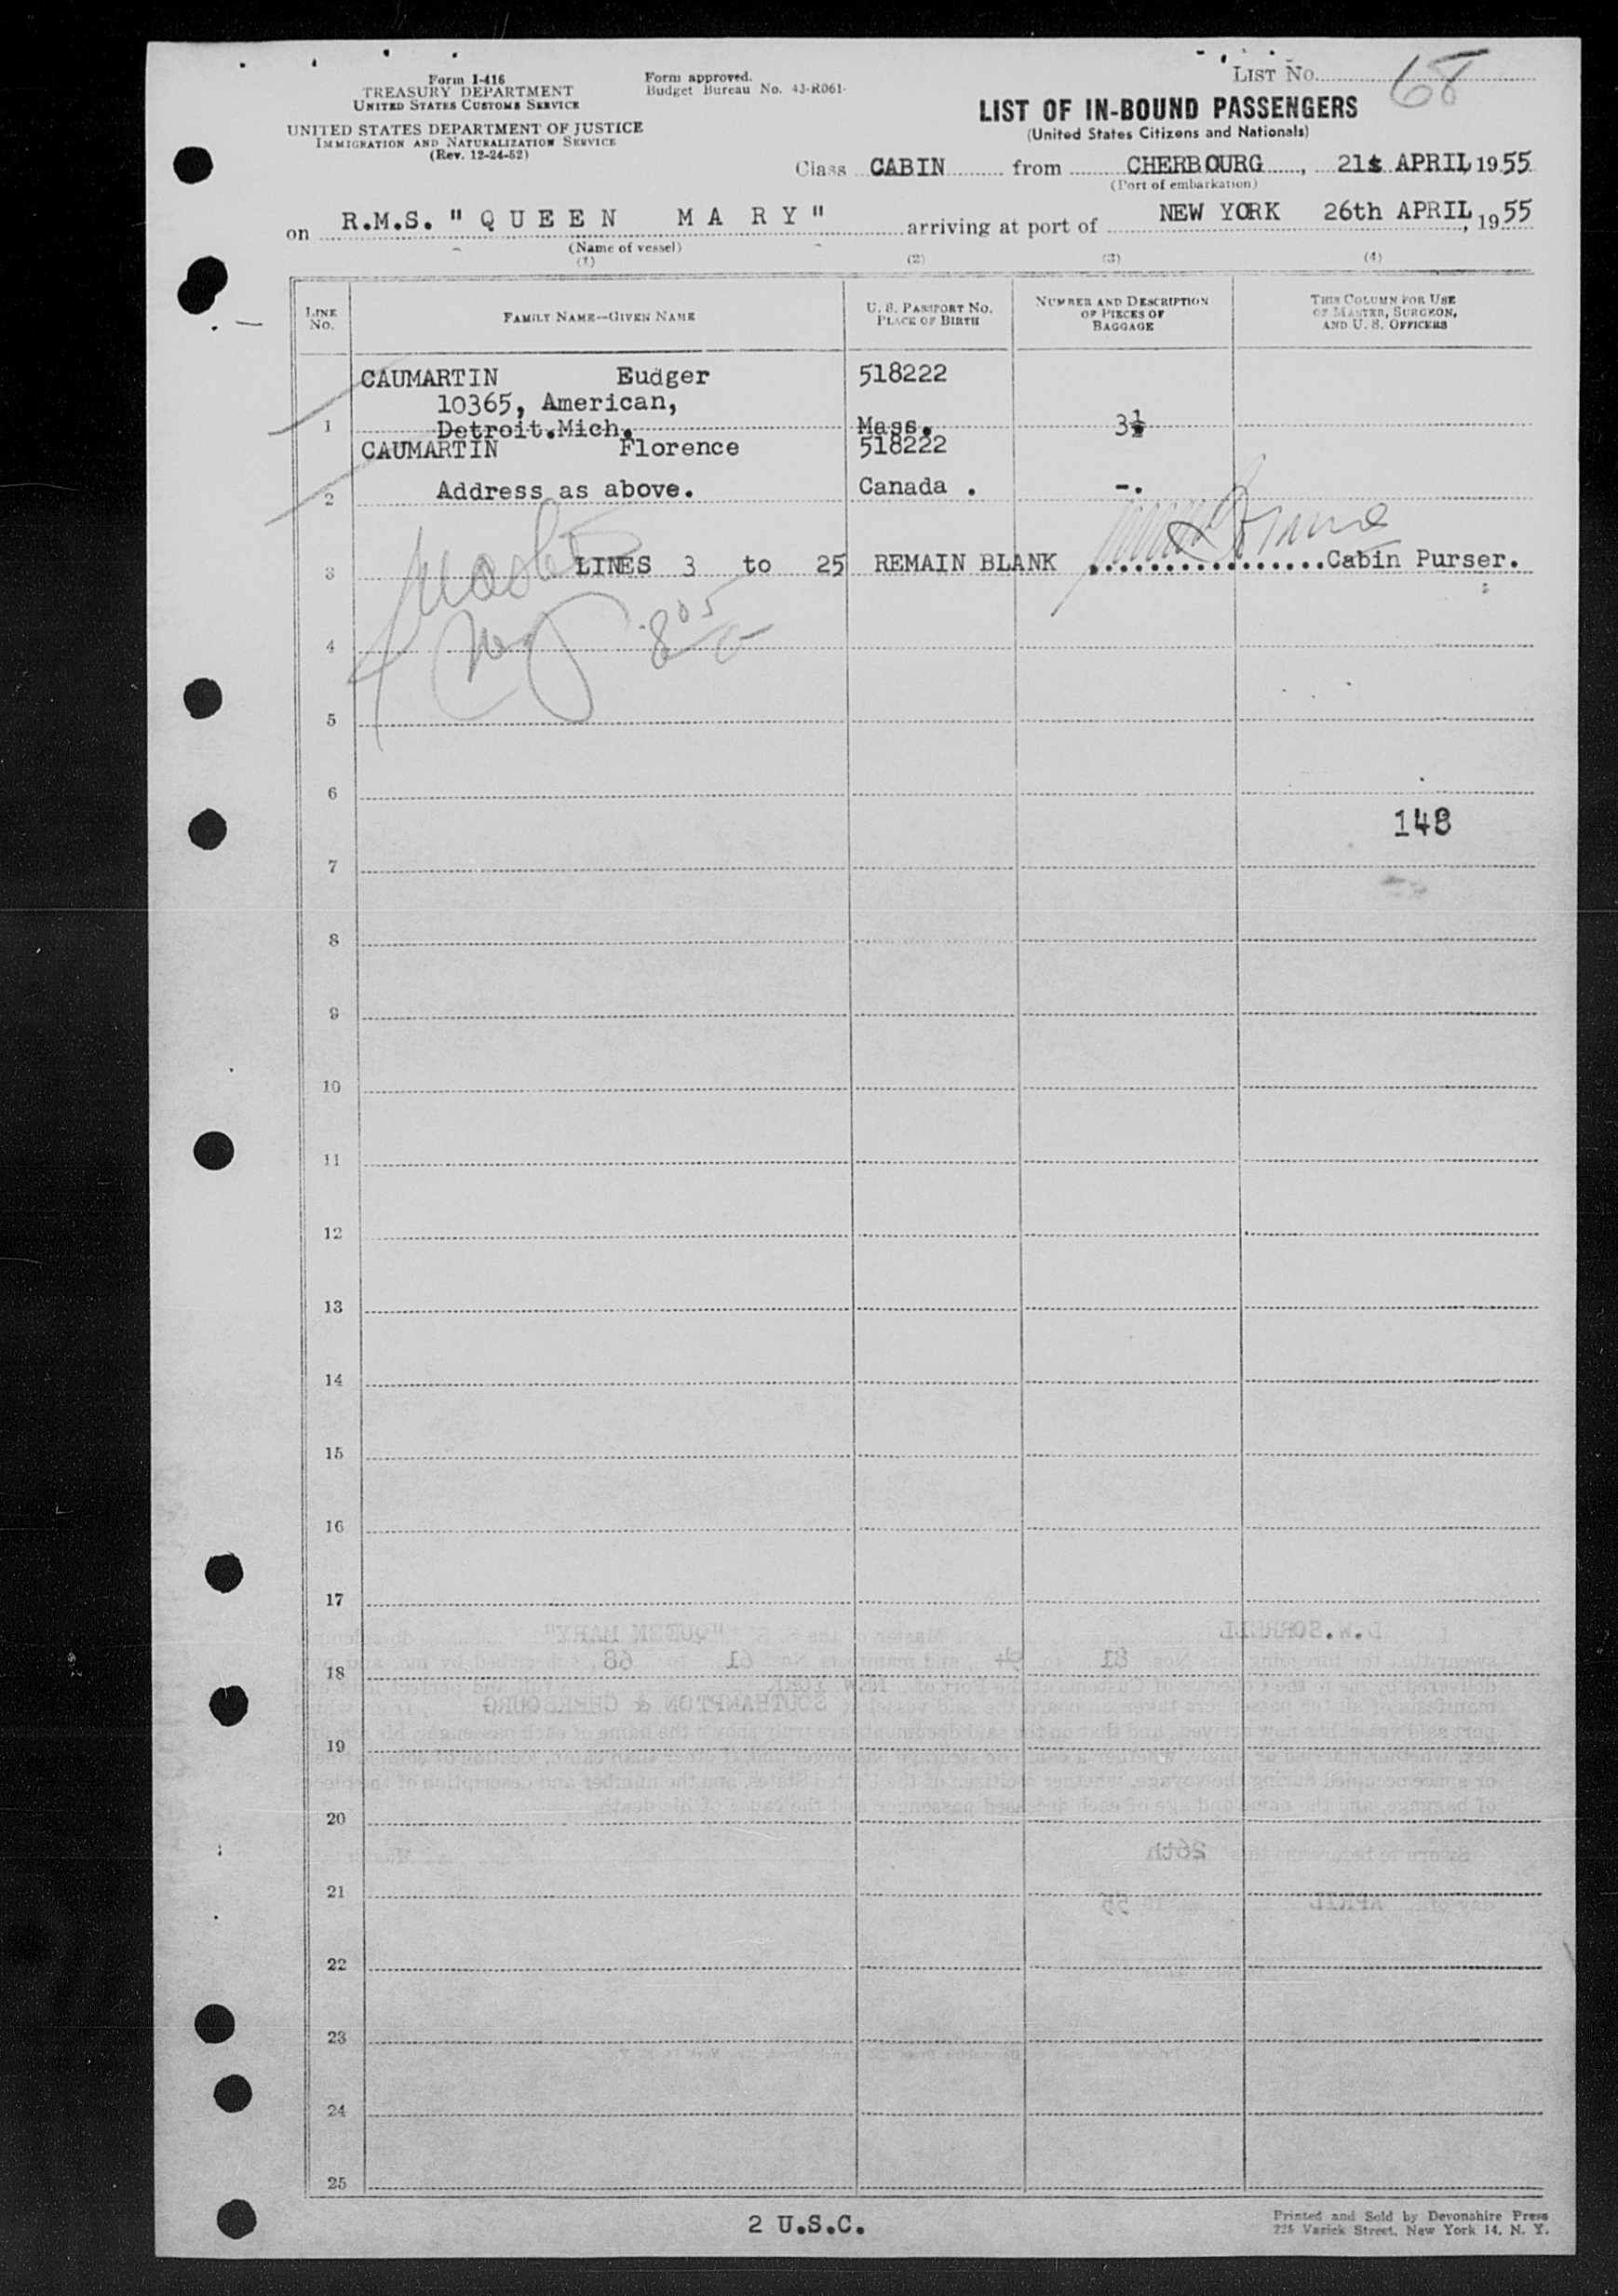 Form I-416
TREASURY DEPARTMENT
UNITED STATES CUSTOMS SERVICE
UNITED STATES DEPARTMENT OF JUSTICE
IMMIGRATION AND NATURALIZATION SERVICE
(Rev. 12-24-52)
Form approved.
Budget Bureau No. 43-R061-
LIST No. 68
LIST OF IN-BOUND PASSENGERS
(United States Citizens and Nationals)
Class CABIN from CHERBOURG, 21st APRIL, 1955
(Port of embarkation)
on R.M.S. "QUEEN MARY" arriving at port of NEW YORK 26th APRIL, 1955
(Name of vessel)
(1) (2) (3) (4)
LINE No. FAMILY NAME—GIVEN NAME U. S. PASSPORT No. PLACE OF BIRTH NUMBER AND DESCRIPTION OF PIECES OF BAGGAGE THIS COLUMN FOR USE OF MASTER, SURGEON, AND U. S. OFFICERS
CAUMARTIN Eudger 518222
10365, American,
1 Detroit.Mich. Mass. 3½
CAUMARTIN Florence 518222
2 Address as above. Canada . -.
3 LINES 3 to 25 REMAIN BLANK ................Cabin Purser.
4
5
6
148
7
8
9
10
11
12
13
14
15
16
17
D.W.SORRELL "QUEEN MARY"
18 81 61 68
NEW YORK
SOUTHAMPTON & CHERBOURG
19
20
26th
21 APRIL 55
22
23
24
25
2 U.S.C.
Printed and Sold by Devonshire Press
225 Varick Street, New York 14, N. Y.